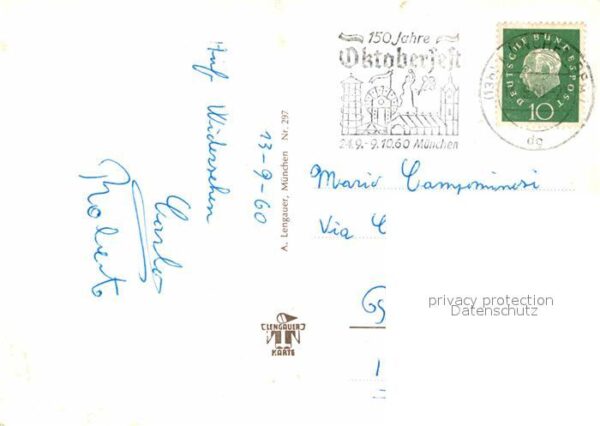 150 Jahre
Oktoberfest
24.9.-9.10.60 München
DEUTSCHE BUNDESPOST
10
Auf Widersehen
Carlo
Roberto
13-9-60
A. Lengauer, München Nr. 297
LENGAUER
KARTE
Mario Campominosi
Via C
privacy protection
Datenschutz